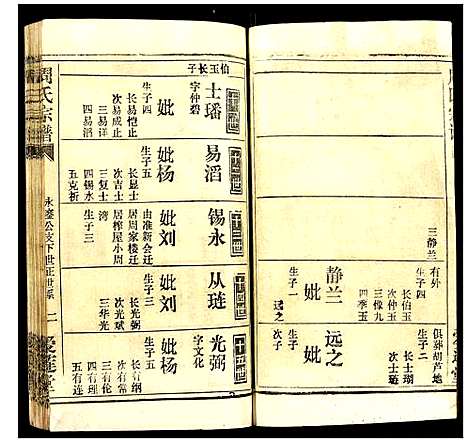 三静兰
静兰
有外
妣
生子四
长伯玉
次仲玉
三像九
四季玉
生子一
远之
远之
俱葬葫芦地
妣
生子二
长士璠
次士琦
次子
周氏宗谱
永
公支下世正世系
二
爱莲堂
伯玉长子
士璠
字仲碧
妣
生子四
长易恺止
次易成止
三易详
四易滔
易滔
妣杨
生子五
长显士
次吉士
三复士
四锡水
五克祈
锡永
妣刘
由准新会迁
居周家楼迁
居榨屋小周
湾
生子三
从琏
妣刘
生子三
长光弼
次光斌
三华光
光弼
字文化
妣杨
生子五
长有纲
次有仁
三有伦
四有理
五有连